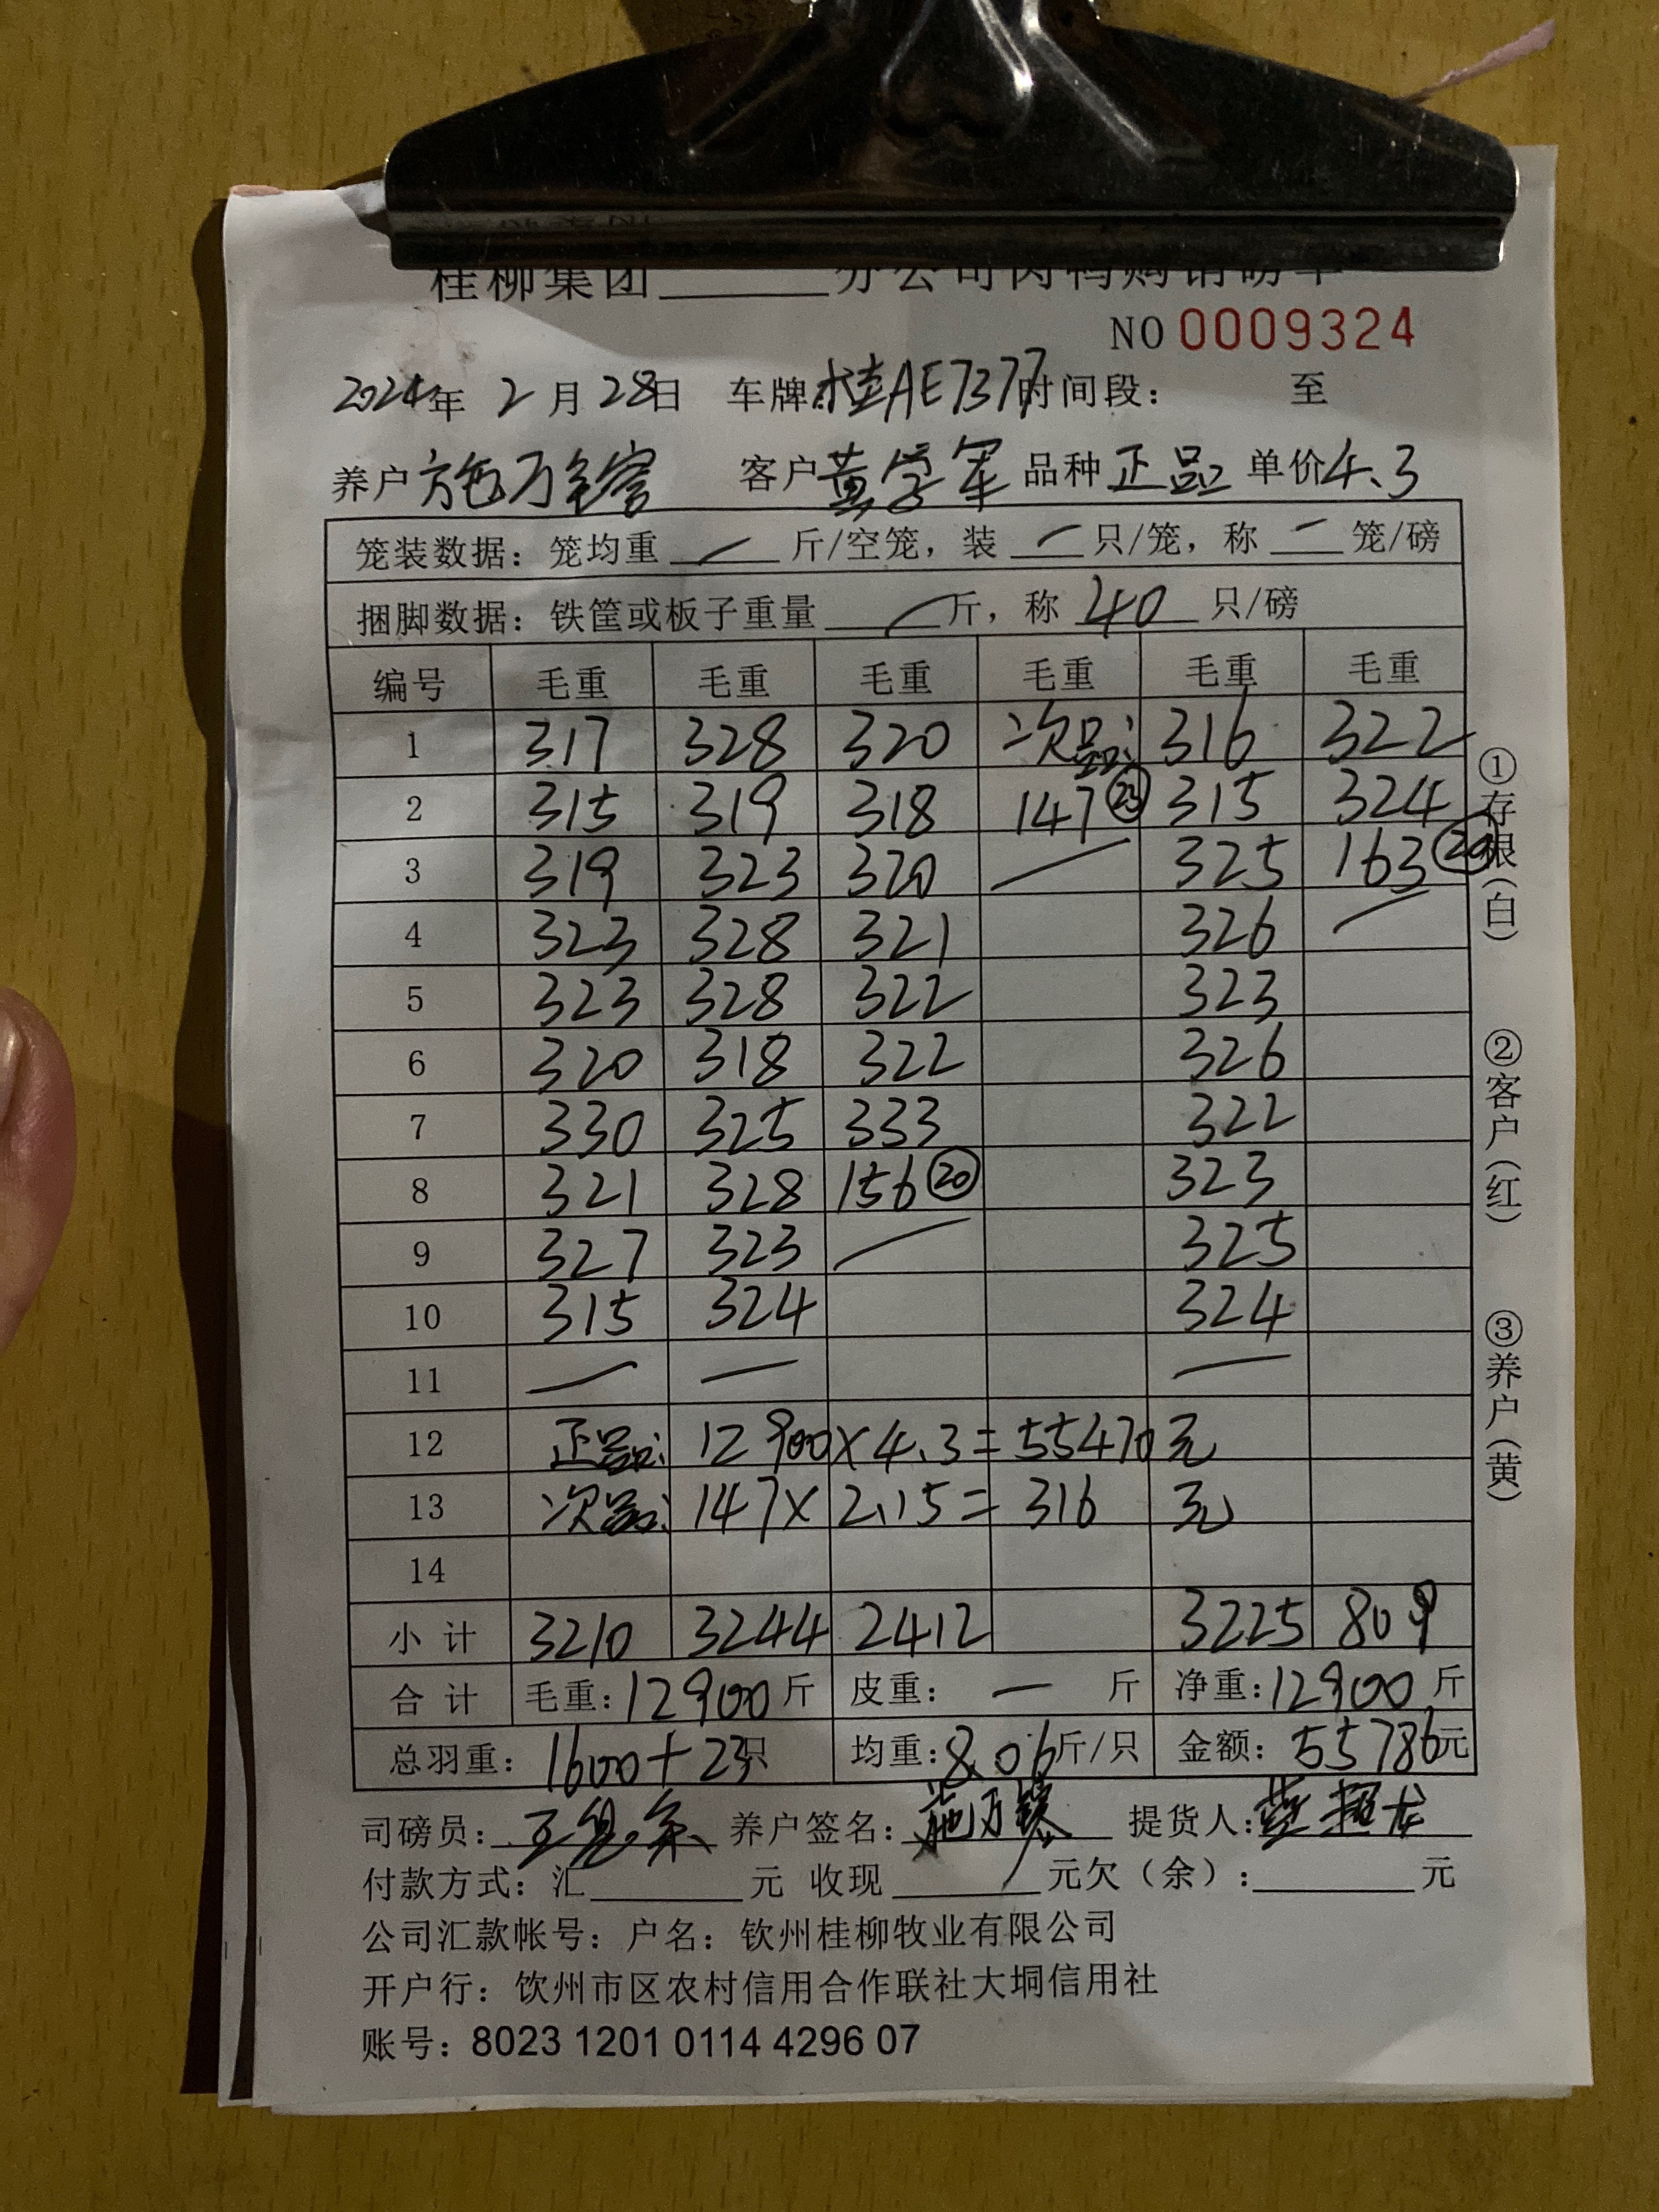 桂柳集团______分公司肉鸭购销磅单
NO 0009324
2024年 2月 28日 车牌:桂AE7377 时间段: 至
养户 施万 客户 黄学军 品种 正品 单价 4.3
笼装数据：笼均重 — 斤/空笼，装 — 只/笼，称 — 笼/磅
捆脚数据：铁筐或板子重量 — 斤，称 40 只/磅
编号 毛重 毛重 毛重 毛重 毛重 毛重
1 317 328 320 次品: 316 322
2 315 319 318 147 (23) 315 324
3 319 323 320 — 325 163 (20)
4 323 328 321 326 —
5 323 328 322 323
6 320 318 322 326
7 330 325 333 322
8 321 328 156 (20) 323
9 327 323 — 325
10 315 324 324
11 — — —
12 正品: 12900×4.3=55470元
13 次品: 147×2.15=316 元
14
小计 3210 3244 2412 3225 809
合计 毛重:12900斤 皮重: — 斤 净重:12900斤
总羽重: 1600+23只 均重:8.06斤/只 金额: 55786元
司磅员: 养户签名: 施万 提货人:
付款方式: 汇______元 收现______元欠（余）:______元
公司汇款帐号：户名：钦州桂柳牧业有限公司
开户行：钦州市区农村信用合作联社大垌信用社
账号：8023 1201 0114 4296 07
①存根（白）
②客户（红）
③养户（黄）